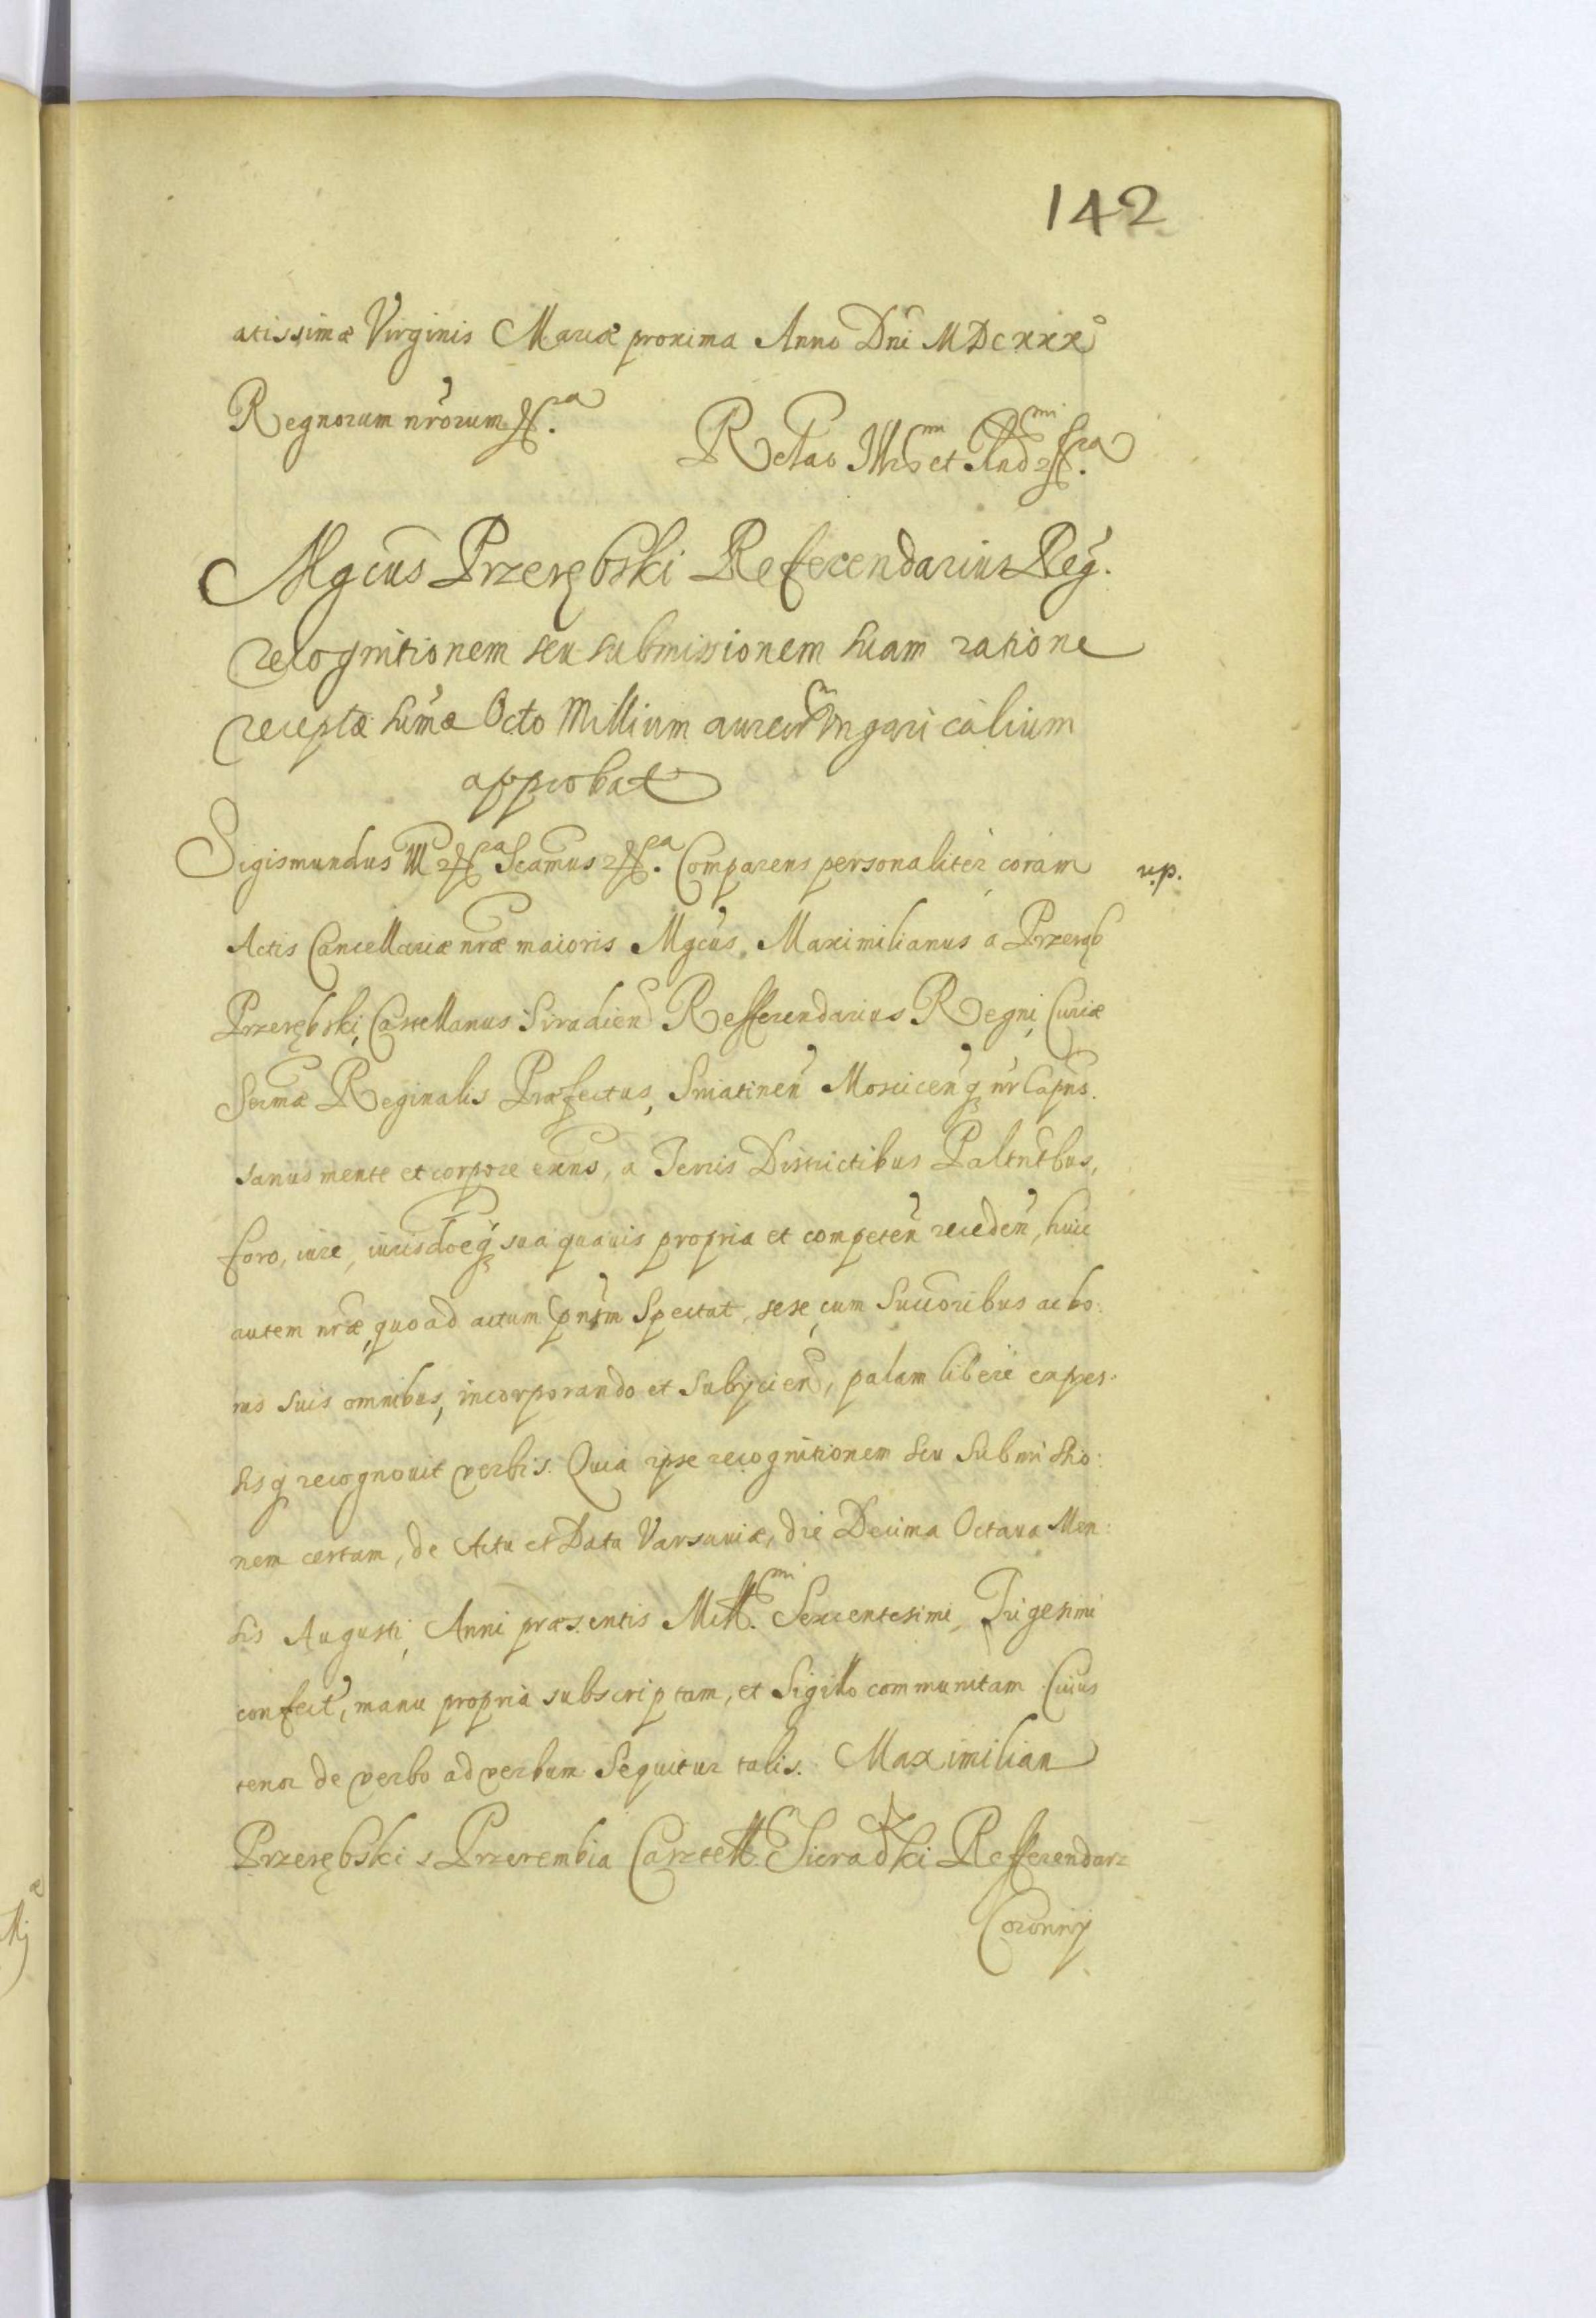 142
atissimæ Virginis Mariæ proxima Anno Dni MDCXXX°
Regnorum nrorum etc.ra
Relao Illris et Rnd etc.ra
Mgcus Przerębski Referendarius Reg.
recognitionem seu submissionem suam ratione
receptæ sumæ Octo Millium aureor Vngaricalium
approbat
Sigismundus III etc.ra Seamus etc.ra Comparens personaliter coram
v.p.
Actis Cancellariæ nræ maioris Mgcus, Maximilianus a Przeręb
Przerębski, Castellanus Siradien Refferendarius Regni, Curiæ
Sermæ Reginalis Præfectus, Sniatinen Moscicenq nr Capns.
sanus mente et corpore exns, a Terris Districtibus Paltntbus,
foro, iure, iurisdoeq sua quauis propria et competen receden, huic
autem nræ, quoad actum pnsm Spectat, sese, cum Succoribus ac bo:
nis suis omnibus, incorporando et Subijcien, palam libere expres:
sisq recognouit verbis. Quia ipse recognitionem seu Submissio:
nem certam, de Actu et Data Varsauiæ, die Decima Octaua Men:
sis Augusti, Anni præsentis Mill.mi Sexcentesimi, Trigesimi
confect, manu propria subscriptam, et Sigillo communitam Cuius
tenor de verbo ad verbum Sequitur talis. Maximilian
Przerębski s Przerembia Casztell. Sieradzki Refferendarz
Coronny